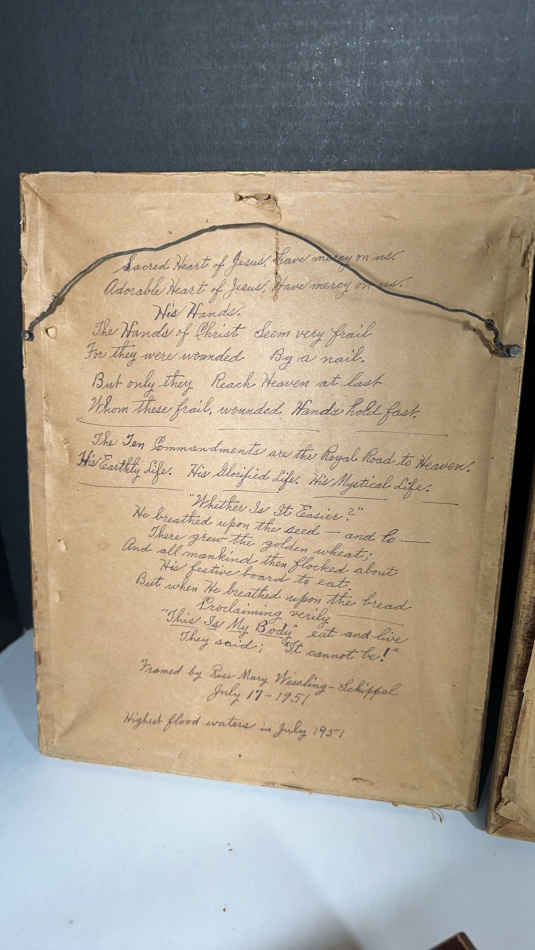 Sacred Heart of Jesus, have mercy on us.
Adorable Heart of Jesus, Have mercy on us.
His Hands.
The Hands of Christ Seem very frail
For they were wounded By a nail.
But only they Reach Heaven at last
Whom these frail, wounded Hands hold fast.
The Ten Commandments are the Royal Road to Heaven.
His Earthly Life. His Glorified Life. His Mystical Life.
"Whether Is It Easier?"
He breathed upon the seed — and lo —
There grew the golden wheat;
And all mankind then flocked about
His festive board to eat.
But when He breathed upon the bread
Proclaiming verily
"This Is My Body" eat and live
They said; "It cannot be!"
Framed by Rose Mary Wessling-Schippel
July 17-1951
Highest flood waters in July 1951